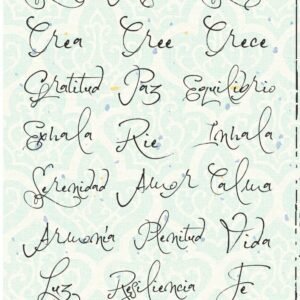 Crea Cree Crece
Gratitud Paz Equilibrio
Exhala Rie Inhala
Serenidad Amor Calma
Armonía Plenitud Vida
Luz Resiliencia Fe